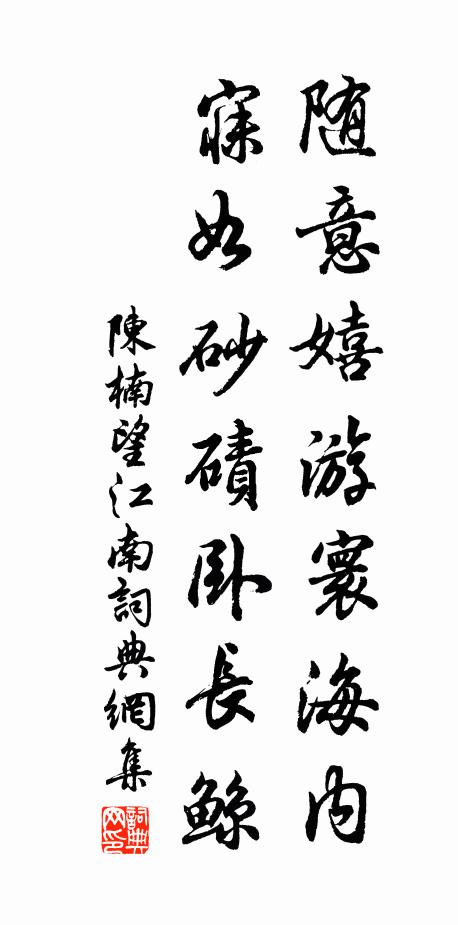 随意嬉游寰海内
寐如砂磧卧長鲸
陳楠望江南詞典網集
詞典網印